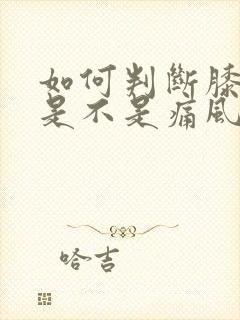 如何判斷膝
是不是痛風
哈吉